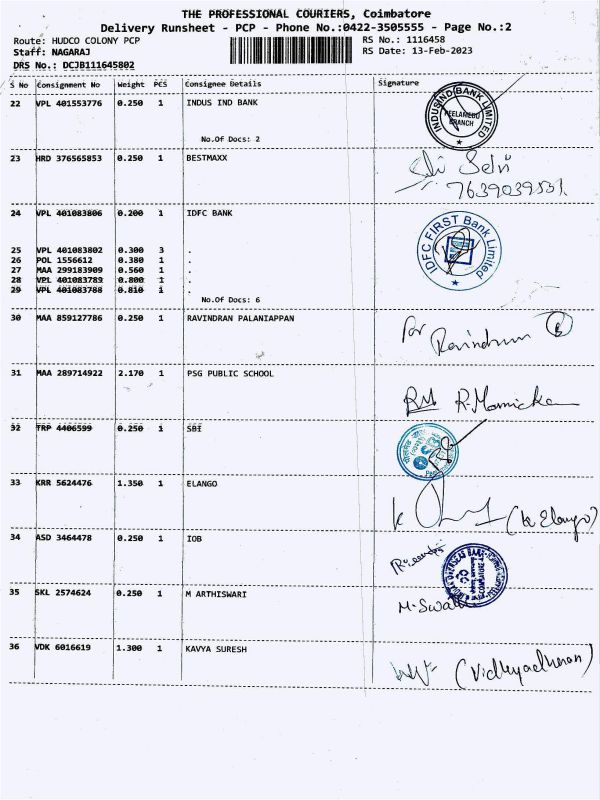 THE PROFESSIONAL COURIERS, Coimbatore
Delivery Runsheet - PCP - Phone No.:0422-3505555 - Page No.:2
Route: HUDCO COLONY PCP
RS No.: 1116458
Staff: NAGARAJ
RS Date: 13-Feb-2023
DRS No.: DCJB111645802
S No Consignment No Weight PCS Consignee Details Signature
22 VPL 401553776 0.250 1 INDUS IND BANK
INDUSIND BANK LIMITED
PEELAMEDU
BRANCH
No.Of Docs: 2
23 HRD 376565853 0.250 1 BESTMAXX
Selvi
7639039531
24 VPL 401083806 0.200 1 IDFC BANK
IDFC FIRST Bank Limited
25 VPL 401083802 0.300 3 .
26 POL 1556612 0.380 1 .
27 MAA 299183909 0.560 1 .
28 VPL 401083789 0.800 1 .
29 VPL 401083788 0.810 1 .
No.Of Docs: 6
30 MAA 859127786 0.250 1 RAVINDRAN PALANIAPPAN
Ravindran
31 MAA 289714922 2.170 1 PSG PUBLIC SCHOOL
32 TRP 4406599 0.250 1 SBI
33 KRR 5624476 1.350 1 ELANGO
(K Elango)
34 ASD 3464478 0.250 1 IOB
35 SKL 2574624 0.250 1 M ARTHISWARI
36 VDK 6016619 1.300 1 KAVYA SURESH
(Vidhyadharan)